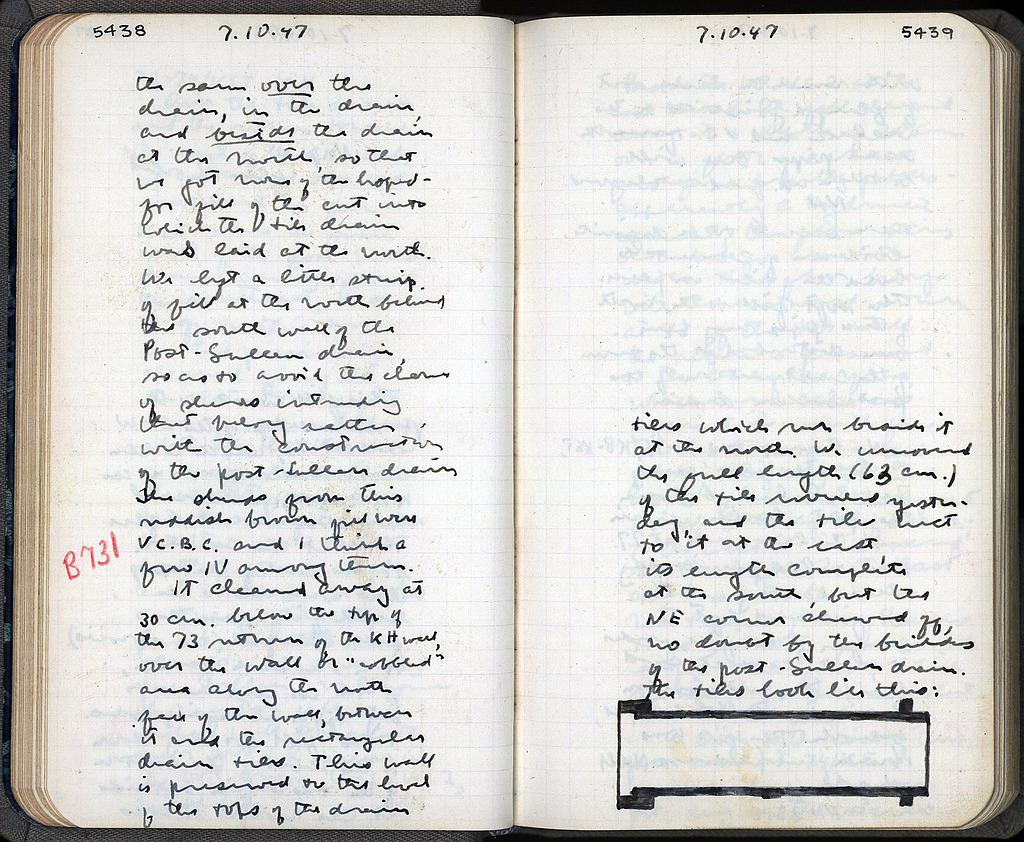 5438 7.10.47
the same over the
drain, in the drain,
and beside the drain
at the north, so that
we got none of the hoped-
for fill of the cut into
which the tile drain
was laid at the north.
We left a little strip
of fill at the north behind
the south wall of the
Post-Sullan drain,
so as to avoid the chance
of sherds intruding
that belong rather
with the construction
of the post-Sullan drain
The sherds from this
reddish brown fill were
V c. B.C. and I think a
few IV among them.
B 731
It cleaned away at
30 cm. below the top of
the 73 return of the KH wall,
over the wall or "cobbled"
area along the north
face of the wall, between
it and the rectangular
drain tiles. This wall
is preserved to the level
of the tops of the drain
7.10.47 5439
tiles which run beside it
at the north. We removed
the full length (63 cm.)
of the tile removed yester-
day, and the tile next
to it at the east,
its length complete
at the south, but the
NE corner chewed off,
no doubt by the builders
of the post-Sullan drain.
The tiles look like this: